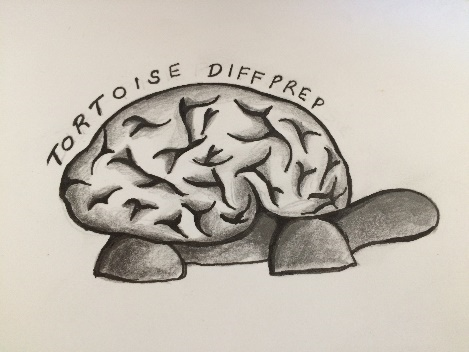 TORTOISE DIFFPREP